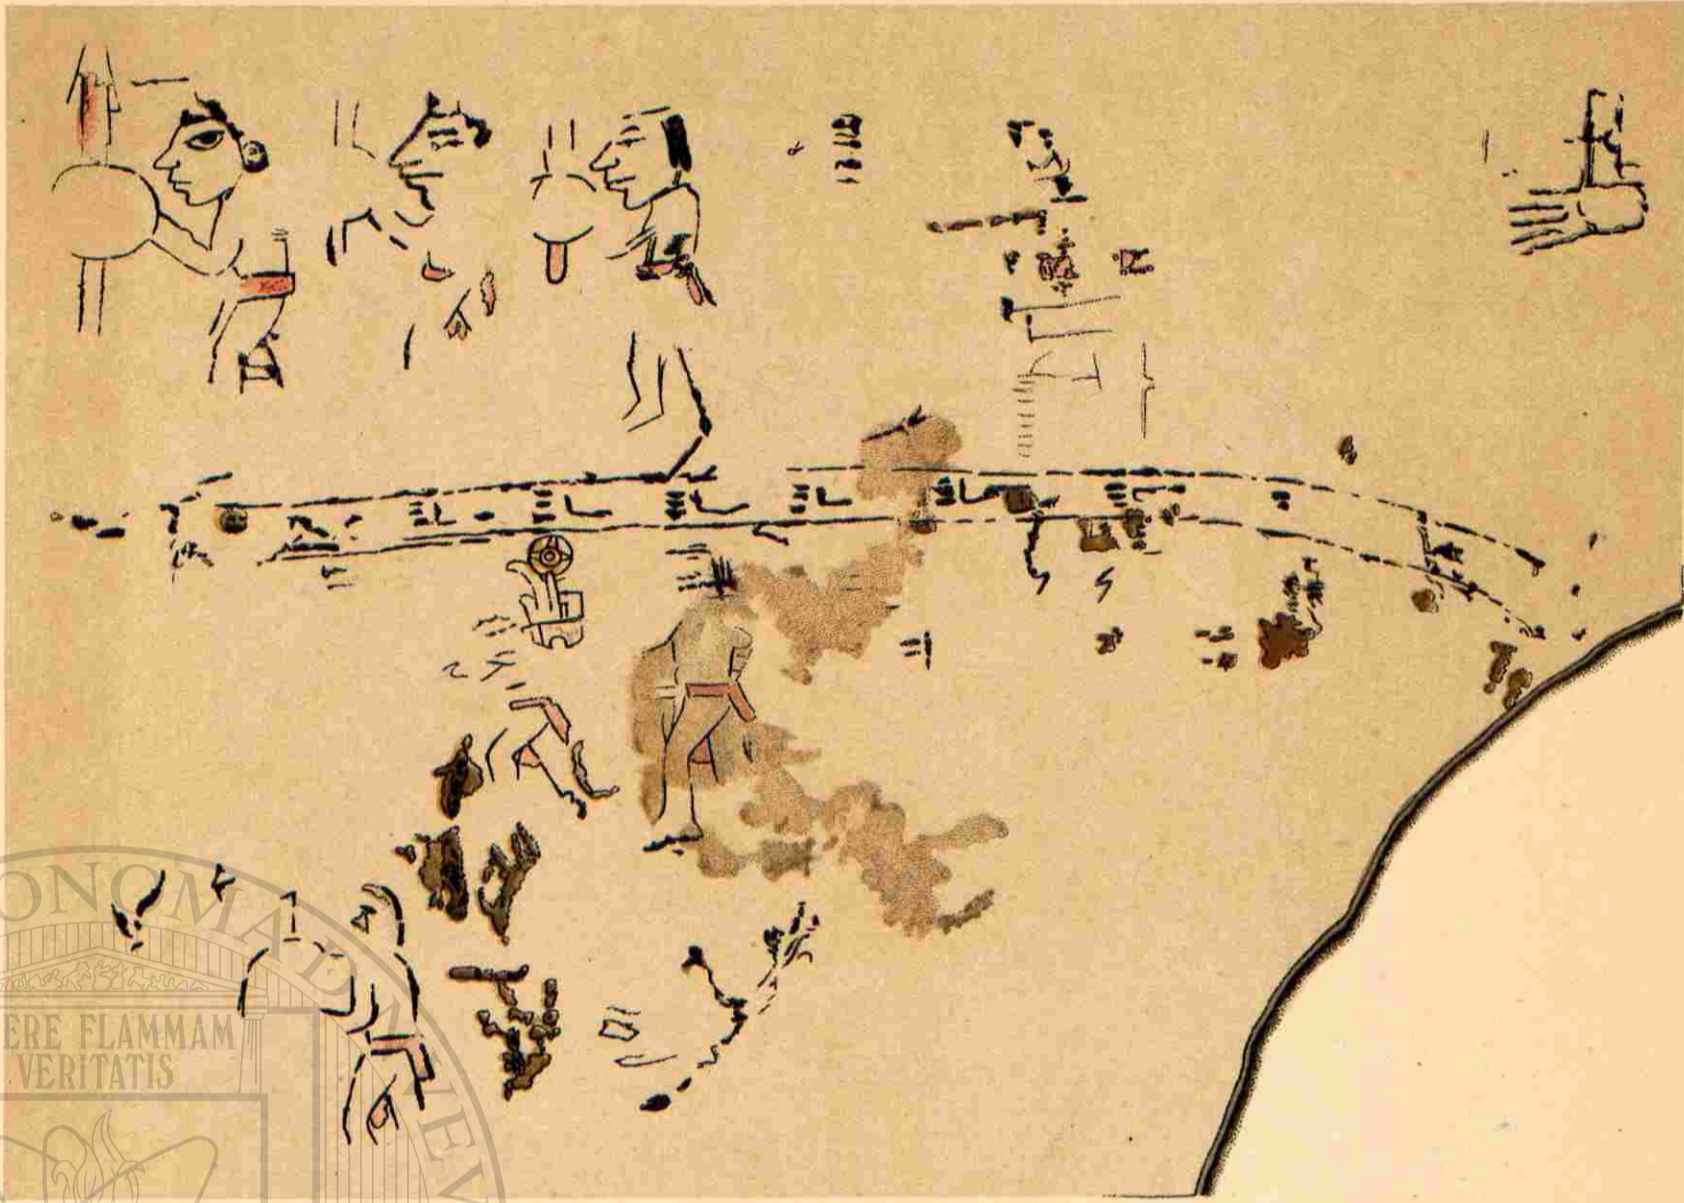 ONOMA
NEV
ERE FLAMMAM
VERITATIS